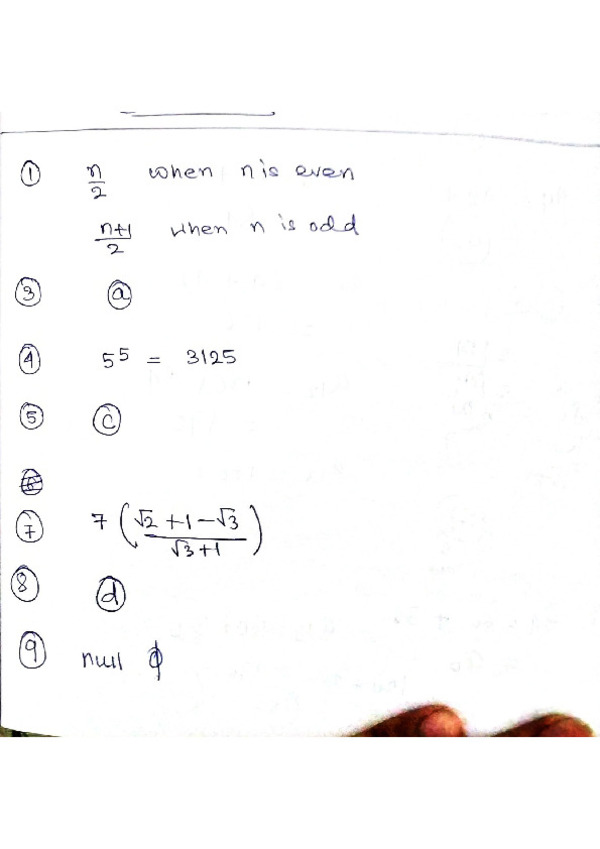 ① n/2 when n is even
(n+1)/2 when n is odd
③ ⓐ
④ 5⁵ = 3125
⑤ ⓒ
⑦ 7 ( (√2 + 1 - √3) / (√3 + 1) )
⑧ ⓓ
⑨ null ϕ